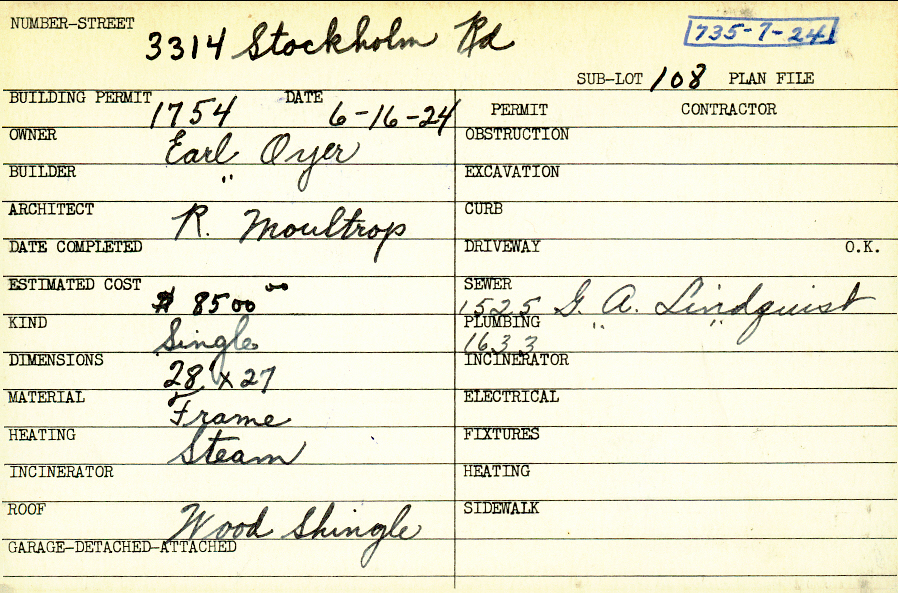 NUMBER-STREET 3314 Stockholm Rd 735-7-24
SUB-LOT 108 PLAN FILE
BUILDING PERMIT 1754 DATE 6-16-24
PERMIT CONTRACTOR
OWNER Earl Oyer
OBSTRUCTION
BUILDER "
EXCAVATION
ARCHITECT R. Moultrop
CURB
DATE COMPLETED
DRIVEWAY O.K.
ESTIMATED COST $ 8500 00
SEWER 1525 G. A. Lindquist
KIND Single
PLUMBING 1633 " "
DIMENSIONS 28' x 27
INCINERATOR
MATERIAL Frame
ELECTRICAL
HEATING Steam
FIXTURES
INCINERATOR
HEATING
ROOF Wood Shingle
SIDEWALK
GARAGE-DETACHED-ATTACHED